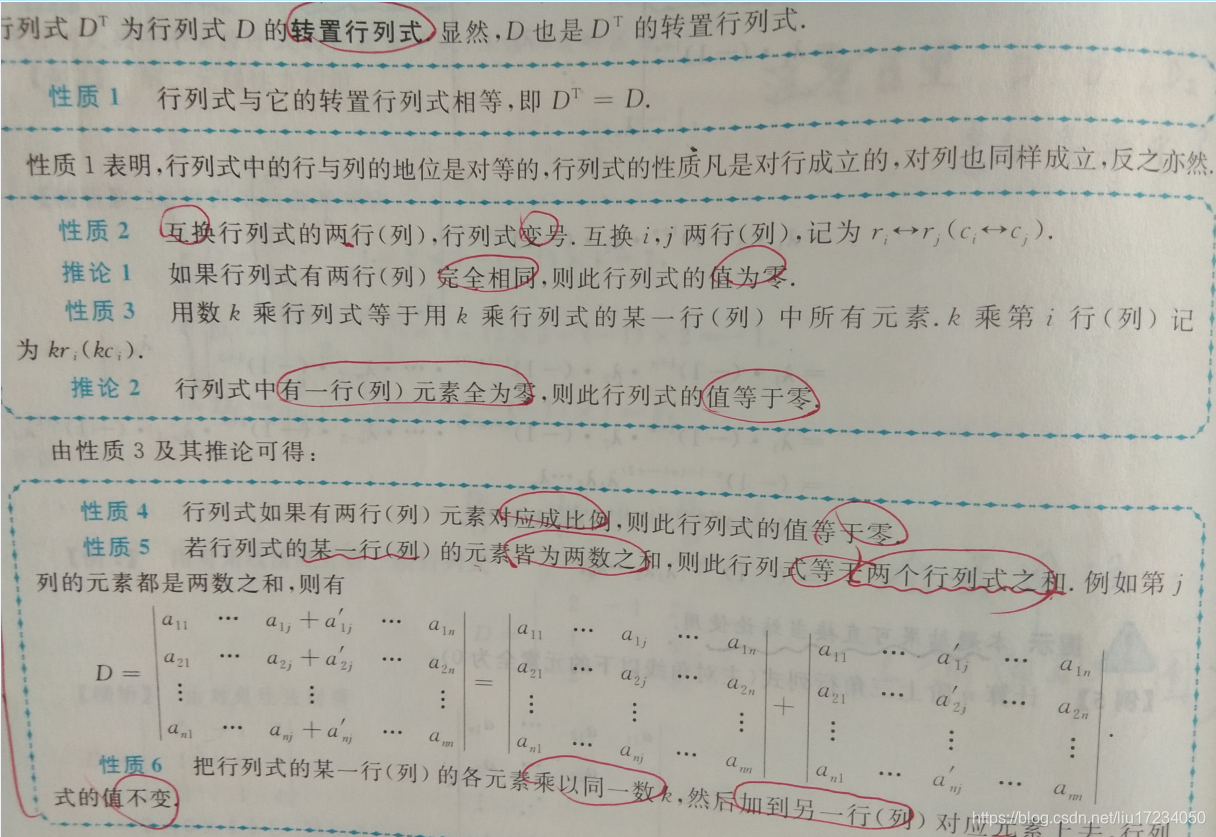 行列式 Dᵀ 为行列式 D 的转置行列式. 显然, D 也是 Dᵀ 的转置行列式.
性质 1 行列式与它的转置行列式相等, 即 Dᵀ = D.
性质 1 表明, 行列式中的行与列的地位是对等的, 行列式的性质凡是对行成立的, 对列也同样成立, 反之亦然.
性质 2 互换行列式的两行(列), 行列式变号. 互换 i, j 两行(列), 记为 rᵢ↔rⱼ (cᵢ↔cⱼ).
推论 1 如果行列式有两行(列) 完全相同, 则此行列式的值为零.
性质 3 用数 k 乘行列式等于用 k 乘行列式的某一行(列) 中所有元素. k 乘第 i 行(列) 记
为 krᵢ(kcᵢ).
推论 2 行列式中有一行(列) 元素全为零, 则此行列式的值等于零.
由性质 3 及其推论可得:
性质 4 行列式如果有两行(列) 元素对应成比例, 则此行列式的值等于零.
性质 5 若行列式的某一行(列) 的元素皆为两数之和, 则此行列式等于两个行列式之和. 例如第 j
列的元素都是两数之和, 则有
a₁₁ ⋯ a₁ⱼ + a′₁ⱼ ⋯ a₁ₙ a₁₁ ⋯ a₁ⱼ ⋯ a₁ₙ a₁₁ ⋯ a′₁ⱼ ⋯ a₁ₙ
a₂₁ ⋯ a₂ⱼ + a′₂ⱼ ⋯ a₂ₙ a₂₁ ⋯ a₂ⱼ ⋯ a₂ₙ a₂₁ ⋯ a′₂ⱼ ⋯ a₂ₙ
D = ⋮ ⋮ ⋮ = ⋮ ⋮ ⋮ + ⋮ ⋮ ⋮ .
aₙ₁ ⋯ aₙⱼ + a′ₙⱼ ⋯ aₙₙ aₙ₁ ⋯ aₙⱼ ⋯ aₙₙ aₙ₁ ⋯ a′ₙⱼ ⋯ aₙₙ
性质 6 把行列式的某一行(列) 的各元素乘以同一数 k, 然后加到另一行(列) 对应元素上去, 行列
式的值不变.
https://blog.csdn.net/liu17234050